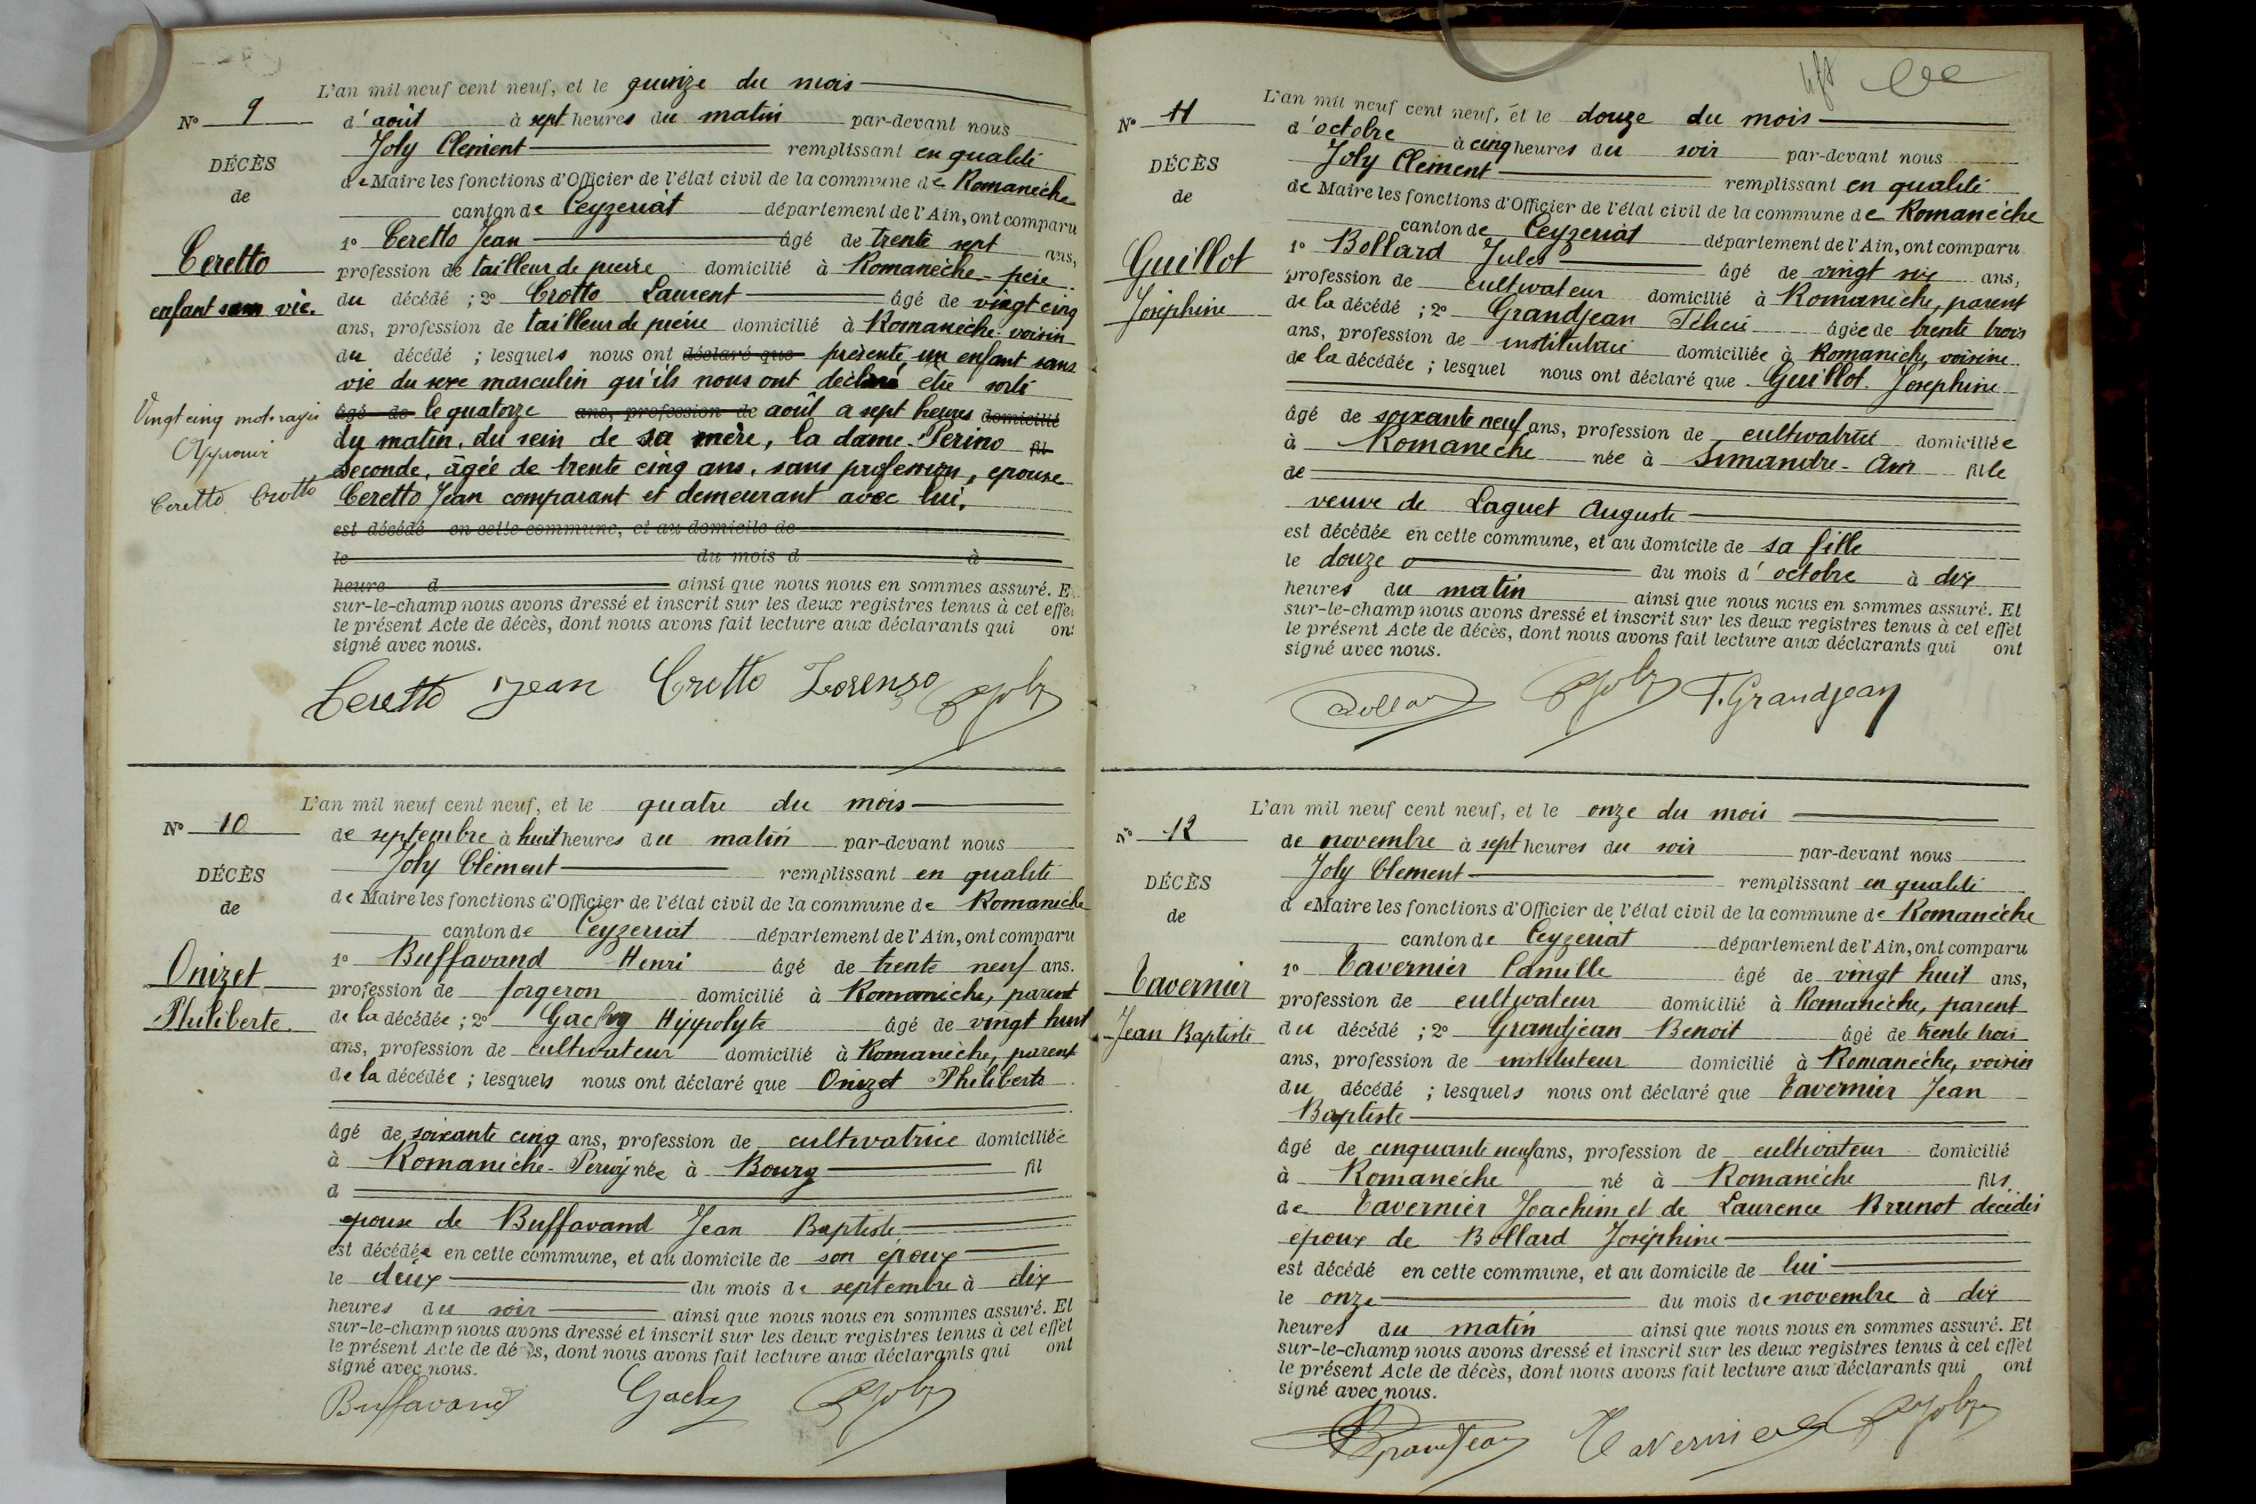 L'an mil neuf cent neuf, et le quinze du mois
N° 9
d'août à sept heures du matin par-devant nous
DÉCÈS
Joly Clément remplissant en qualité
de
de Maire les fonctions d'Officier de l'état civil de la commune de Romanèche
canton de Ceyzeriat département de l'Ain, ont comparu
Ceretto
enfant sans vie.
1° Ceretto Jean âgé de trente sept ans,
profession de tailleur de pierre domicilié à Romanèche - père
du décédé ; 2° Crotto Laurent âgé de vingt cinq
ans, profession de tailleur de pierre domicilié à Romanèche - voisin
du décédé ; lesquels nous ont déclaré que présenté un enfant sans
vie du sexe masculin qu'ils nous ont déclaré être sorti
âgé de le quatorze ans, profession de août a sept heures domicilié
du matin, du sein de sa mère, la dame Perino fil
Seconde, âgée de trente cinq ans, sans profession, épouse
Ceretto Jean comparant et demeurant avec lui.
Vingt cinq mots rayés
Approuvé
Ceretto Crotto
est décédé en cette commune, et au domicile de
le du mois d à
heure d ainsi que nous nous en sommes assuré. E
sur-le-champ nous avons dressé et inscrit sur les deux registres tenus à cet effe
le présent Acte de décès, dont nous avons fait lecture aux déclarants qui ont
signé avec nous.
Ceretto Jean Crotto Lorenzo Joly
L'an mil neuf cent neuf, et le quatre du mois
N° 10
de septembre à huit heures du matin par-devant nous
DÉCÈS
Joly Clément remplissant en qualité
de
de Maire les fonctions d'Officier de l'état civil de la commune de Romanèche
canton de Ceyzeriat département de l'Ain, ont comparu
Onizet
Philiberte.
1° Buffavand Henri âgé de trente neuf ans.
profession de forgeron domicilié à Romanèche, parent
de la décédée ; 2° Gachy Hippolyte âgé de vingt huit
ans, profession de cultivateur domicilié à Romanèche, parent
de la décédée ; lesquels nous ont déclaré que Onizet Philiberte
âgé de soixante cinq ans, profession de cultivatrice domiciliée
à Romanèche - née à Bourg fil
d
epouse de Buffavand Jean Baptiste
est décédée en cette commune, et au domicile de son époux
le deux du mois de septembre à dix
heures du soir ainsi que nous nous en sommes assuré. Et
sur-le-champ nous avons dressé et inscrit sur les deux registres tenus à cet effet
le présent Acte de décès, dont nous avons fait lecture aux déclarants qui ont
signé avec nous.
Buffavand Gachy Joly
L'an mil neuf cent neuf, et le douze du mois
N° 11
d'octobre à cinq heures du soir par-devant nous
DÉCÈS
Joly Clément remplissant en qualité
de
de Maire les fonctions d'Officier de l'état civil de la commune de Romanèche
canton de Ceyzeriat département de l'Ain, ont comparu
Guillot
Joséphine
1° Bollard Jules âgé de vingt six ans,
profession de cultivateur domicilié à Romanèche, parent
de la décédé ; 2° Grandjean âgée de trente trois
ans, profession de institutrice domiciliée à Romanèche, voisine
de la décédée ; lesquel nous ont déclaré que Guillot Josephine
âgé de soixante neuf ans, profession de cultivatrice domiciliée
à Romanèche née à Simandre - Ain fille
de
veuve de Laguet Auguste
est décédée en cette commune, et au domicile de sa fille
le douze du mois d'octobre à dix
heures du matin ainsi que nous nous en sommes assuré. Et
sur-le-champ nous avons dressé et inscrit sur les deux registres tenus à cet effet
le présent Acte de décès, dont nous avons fait lecture aux déclarants qui ont
signé avec nous.
Bollard Joly T. Grandjean
L'an mil neuf cent neuf, et le onze du mois
N° 12
de novembre à sept heures du soir par-devant nous
DÉCÈS
Joly Clément remplissant en qualité
de
de Maire les fonctions d'Officier de l'état civil de la commune de Romanèche
canton de Ceyzeriat département de l'Ain, ont comparu
Tavernier
Jean Baptiste
1° Tavernier Camille âgé de vingt huit ans,
profession de cultivateur domicilié à Romanèche, parent
du décédé ; 2° Grandjean Benoit âgé de trente trois
ans, profession de instituteur domicilié à Romanèche, voisin
du décédé ; lesquels nous ont déclaré que Tavernier Jean
Baptiste
âgé de cinquante neuf ans, profession de cultivateur domicilié
à Romanèche né à Romanèche fils
de Tavernier Joachim et de Laurence Brunot décédés
époux de Bollard Joséphine
est décédé en cette commune, et au domicile de lui
le onze du mois de novembre à dix
heures du matin ainsi que nous nous en sommes assuré. Et
sur-le-champ nous avons dressé et inscrit sur les deux registres tenus à cet effet
le présent Acte de décès, dont nous avons fait lecture aux déclarants qui ont
signé avec nous.
Grandjean Tavernier Joly